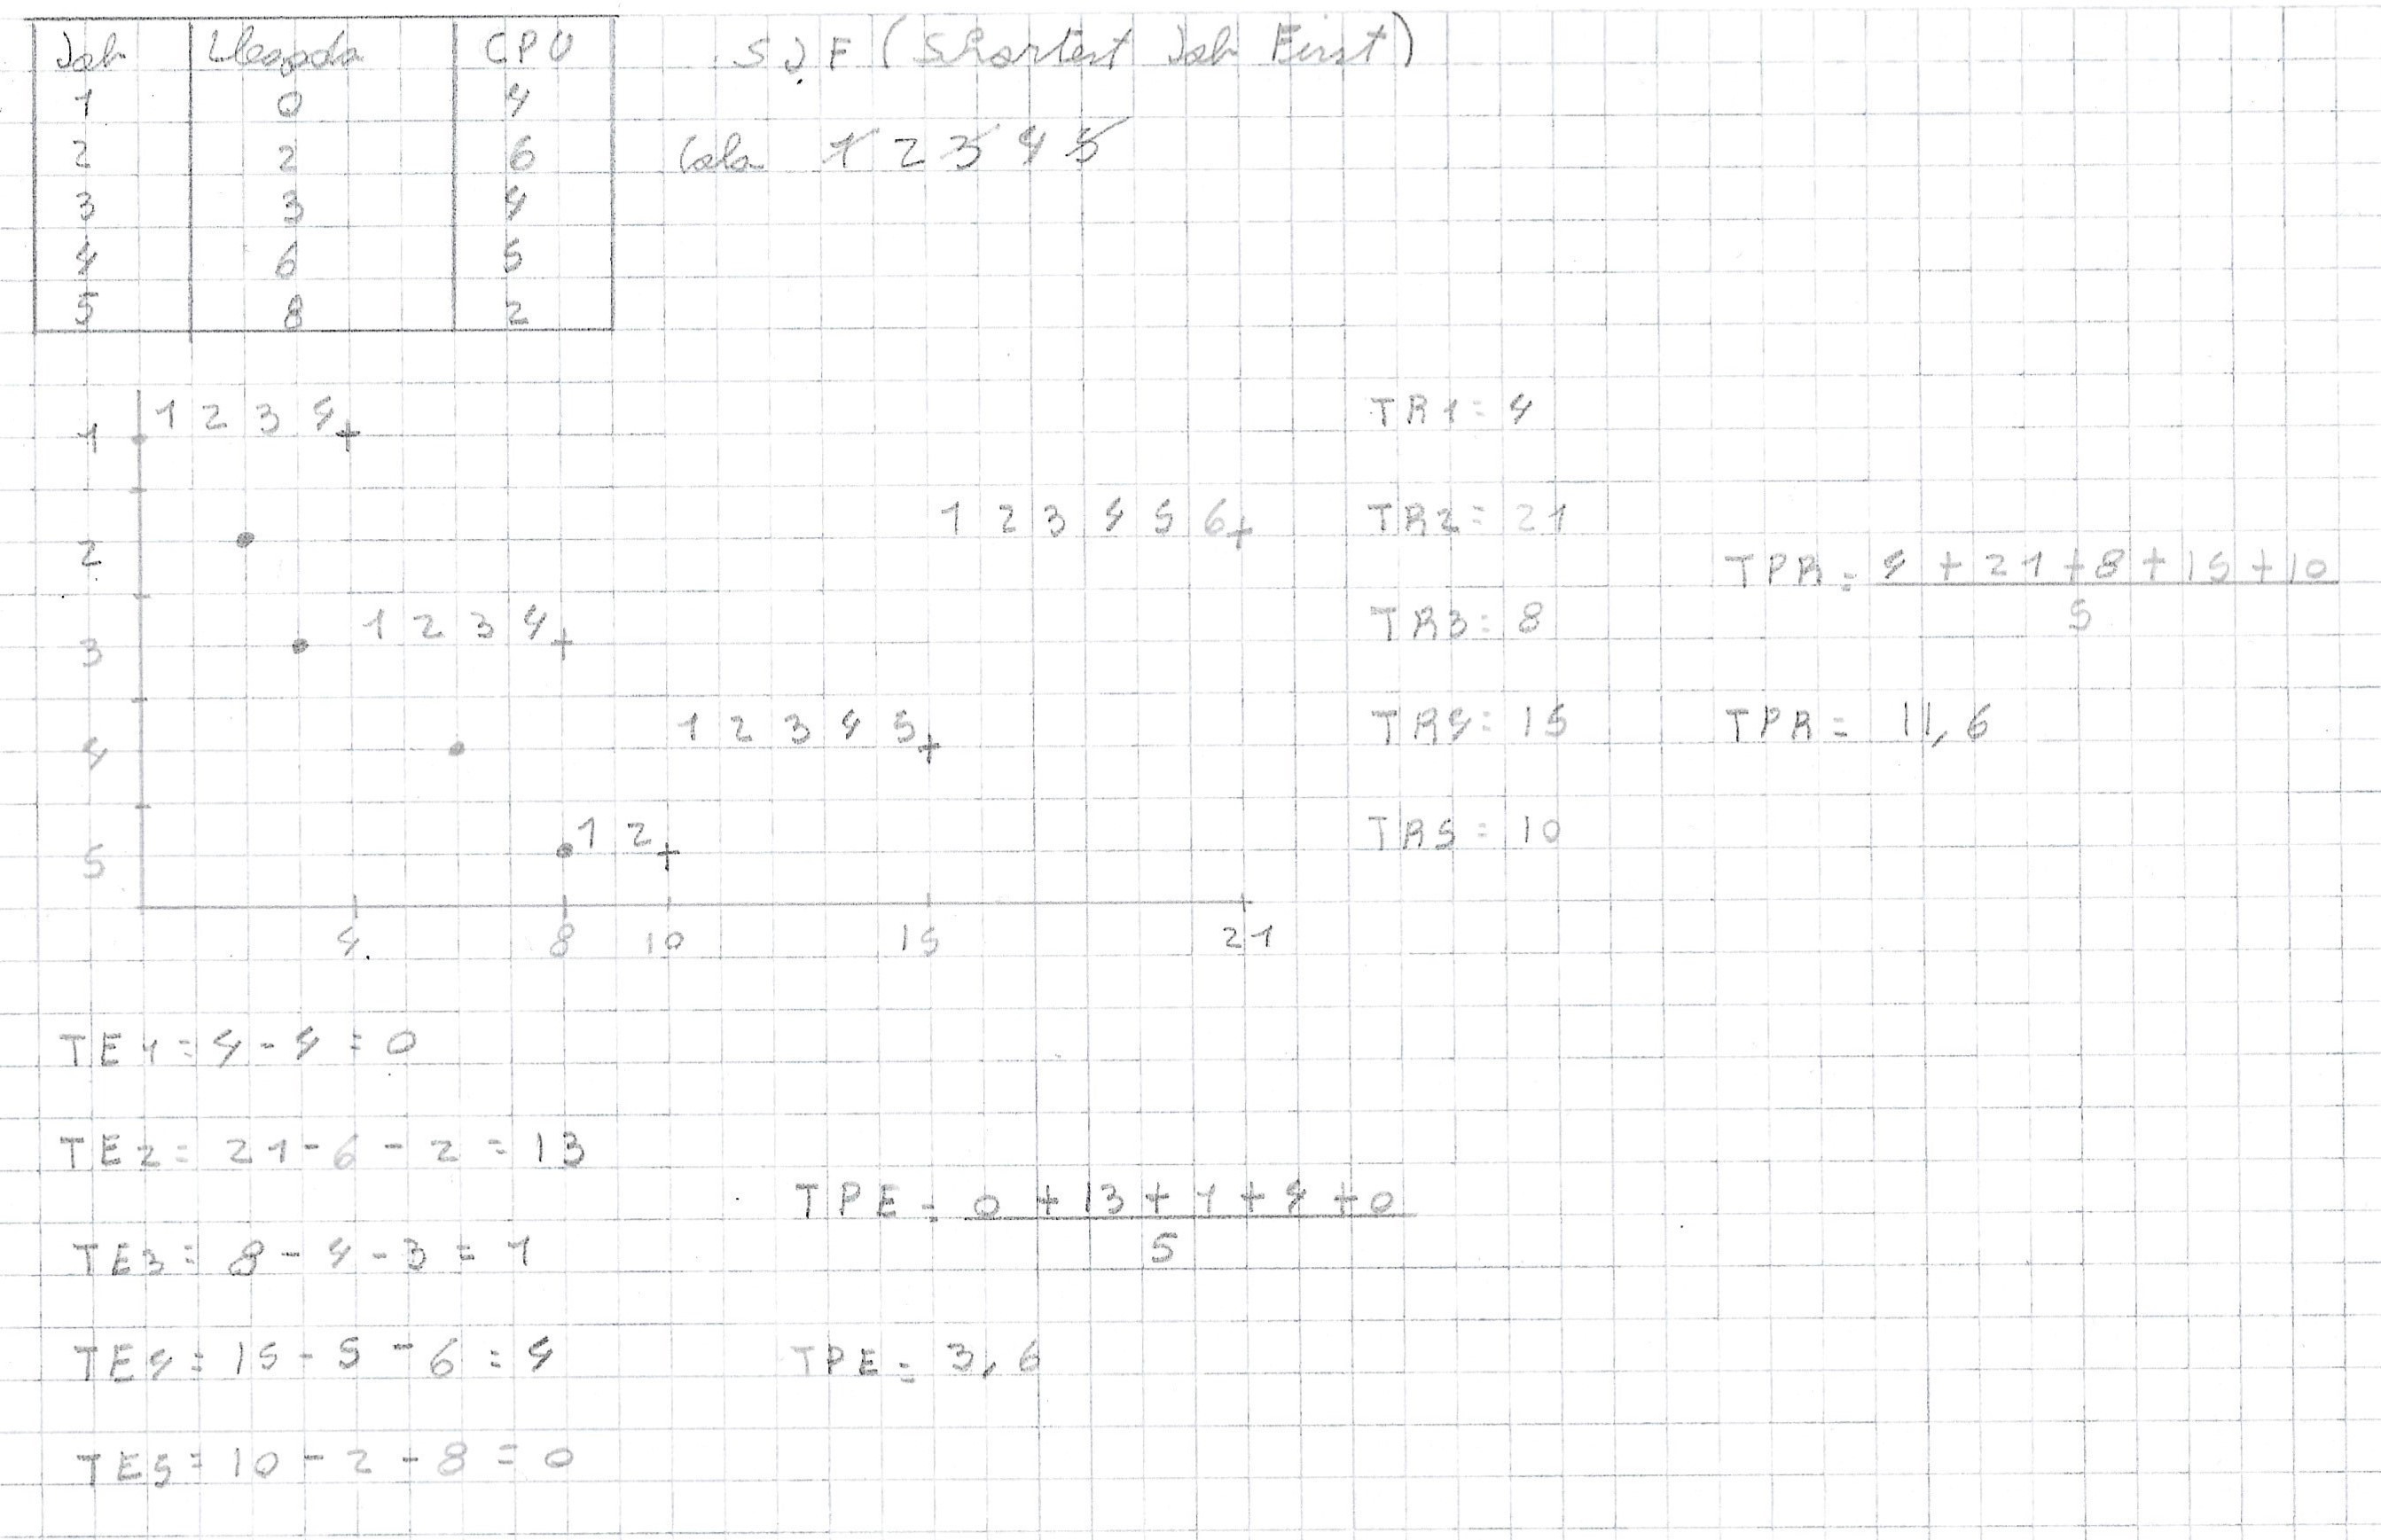 Job Llegada CPU
1 0 4
2 2 6
3 3 4
4 6 5
5 8 2
SJF (Shortest Job First)
Cola 1 2 3 4 5
1 1 2 3 4
2 1 2 3 4 5 6
3 1 2 3 4
4 1 2 3 4 5
5 1 2
4 8 10 15 21
TR1 = 4
TR2 = 21
TR3 = 8
TR4 = 15
TR5 = 10
TPR = 4 + 21 + 8 + 15 + 10
5
TPR = 11,6
TE1 = 4 - 4 = 0
TE2 = 21 - 6 - 2 = 13
TE3 = 8 - 4 - 3 = 1
TE4 = 15 - 5 - 6 = 4
TE5 = 10 - 2 - 8 = 0
TPE = 0 + 13 + 1 + 4 + 0
5
TPE = 3,6